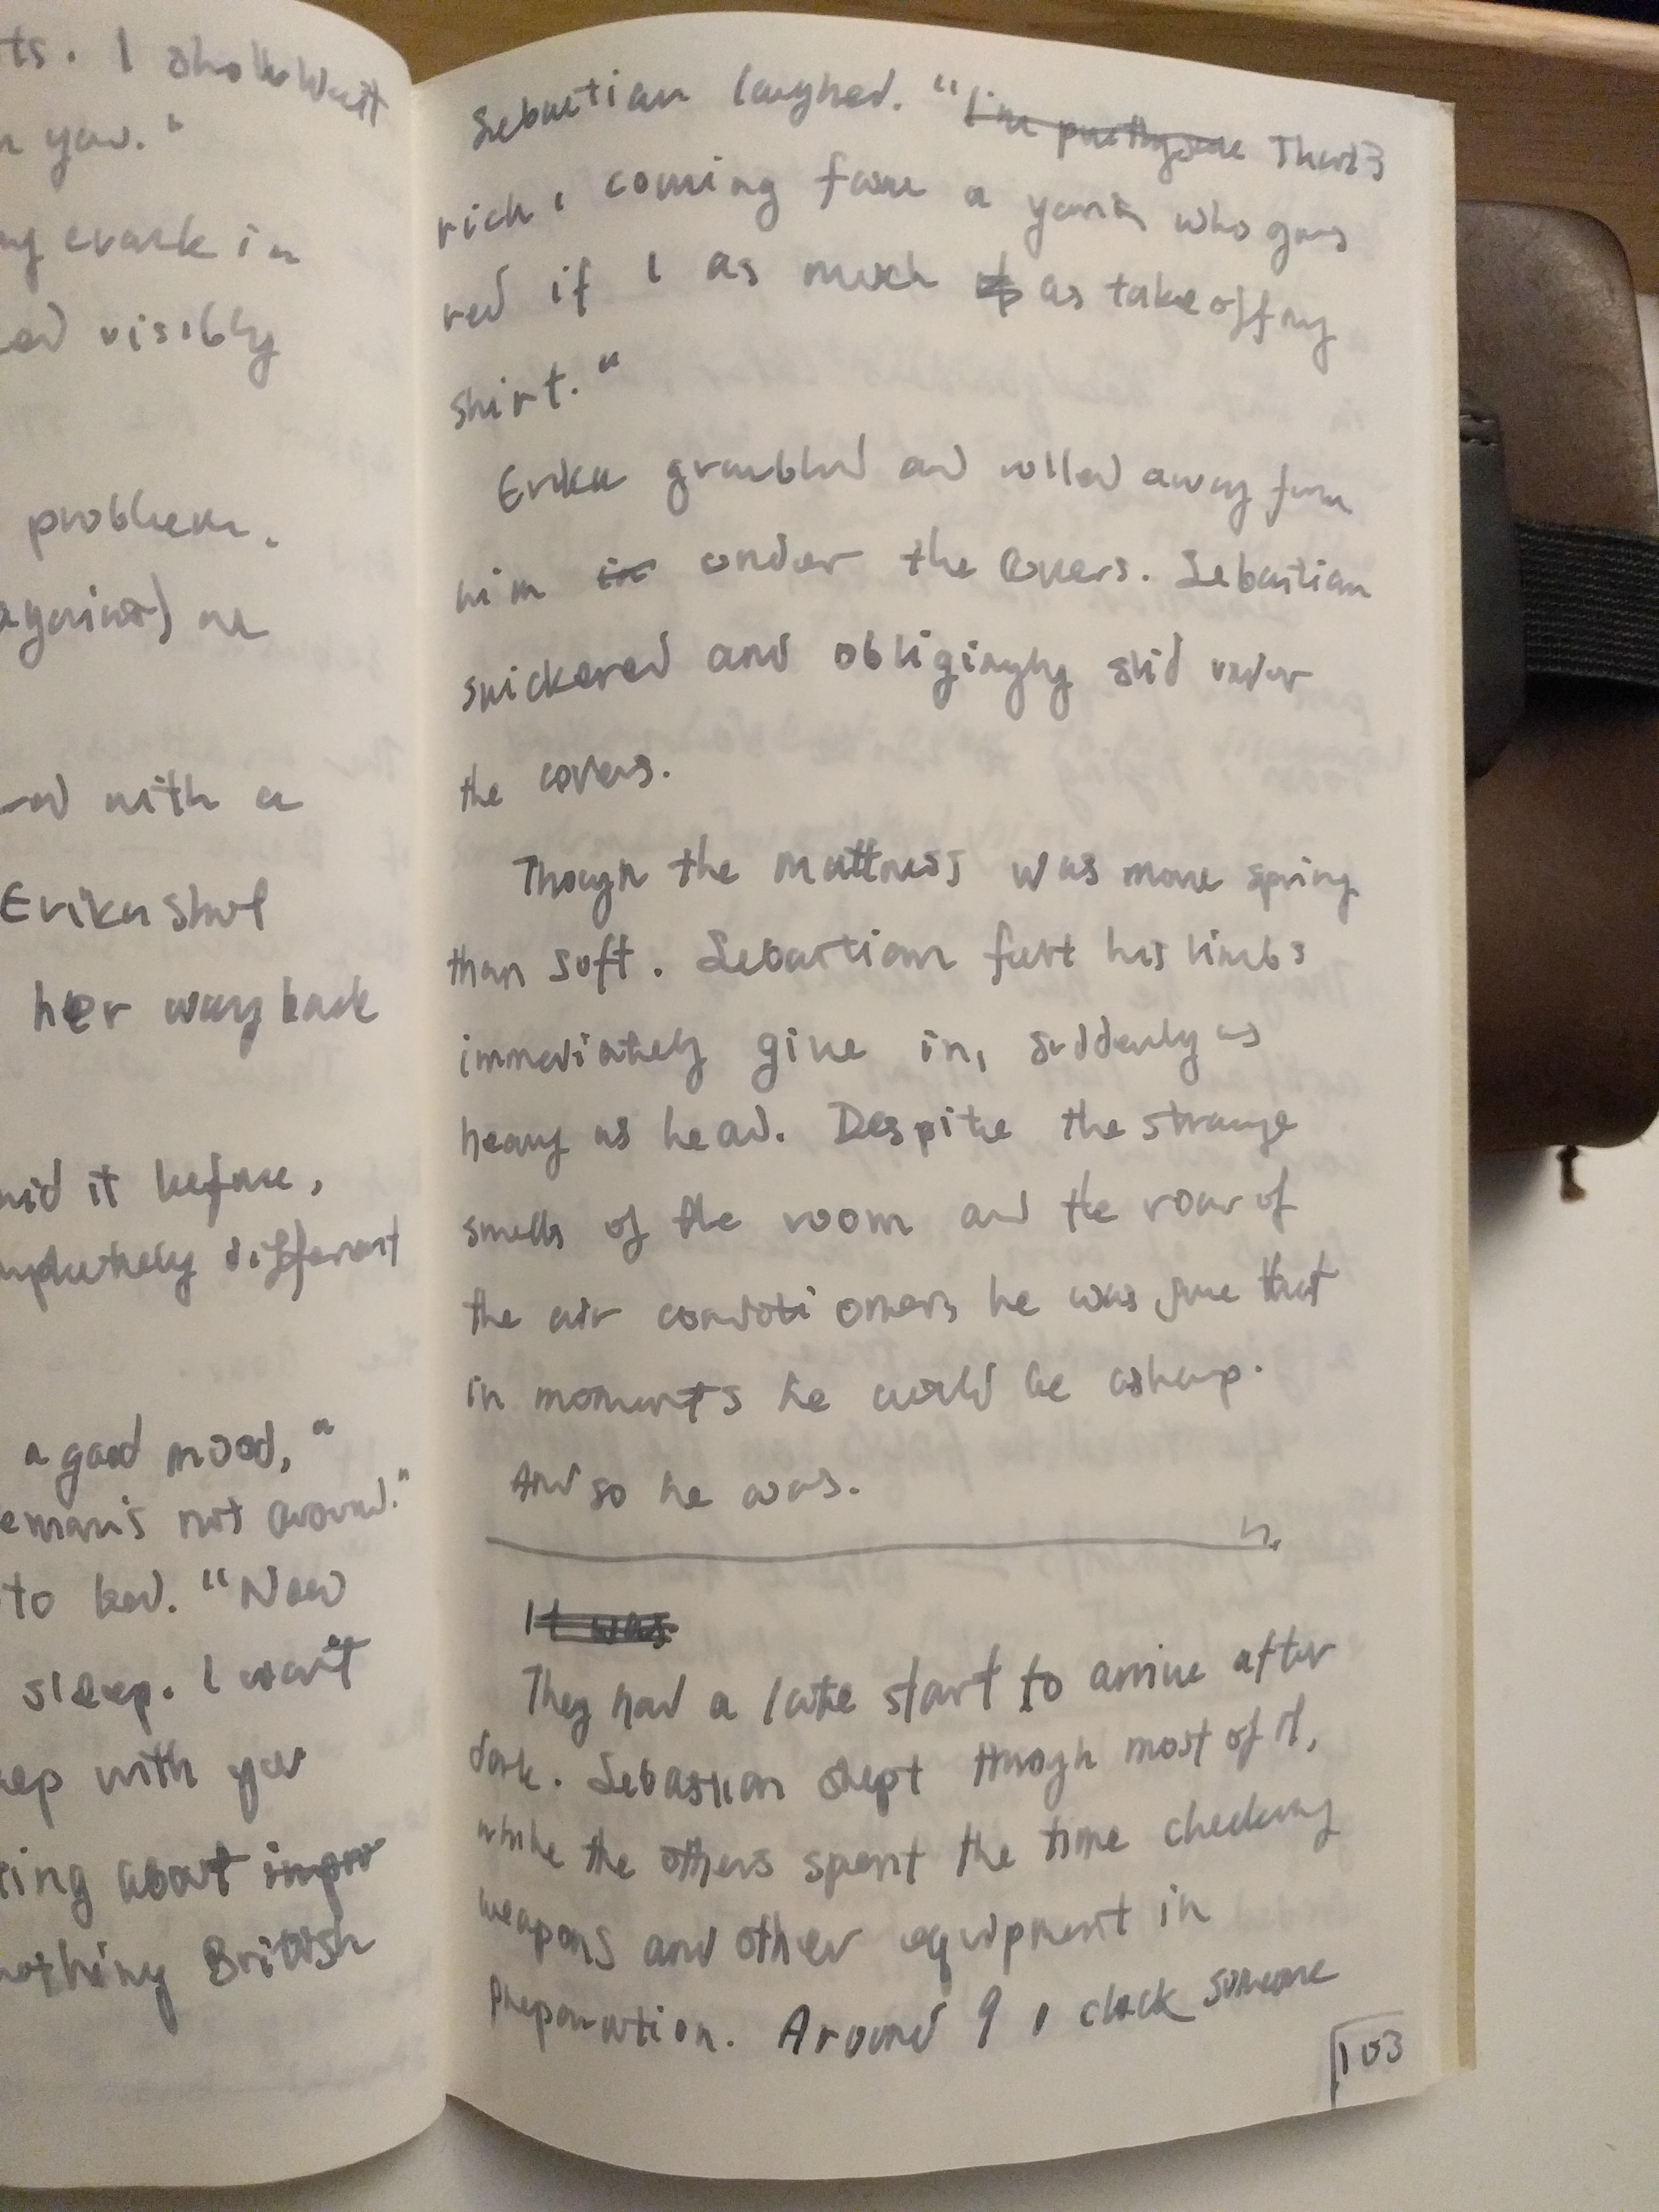 ts. I
n you."
crack in
visibly
problem.
against) me
with a
Erika shot
her way back
it before,
different
a good mood,"
not around."
to bed. "Now
sleep. I won't
with you
ting about impro
nothing British
Sebastian laughed. "I'm pretty sure That's
rich, coming from a yank who goes
red if I as much as take off my
shirt."
Erika grumbled and rolled away from
him in under the covers. Sebastian
snickered and obligingly slid under
the covers.
Though the mattress was more spring
than soft. Sebastian felt his limbs
immediately give in, suddenly as
heavy as lead. Despite the strange
smells of the room and the roar of
the air conditioners he was sure that
in moments he would be asleep.
And so he was.
It was
They had a late start to arrive after
dark. Sebastian slept through most of it,
while the others spent the time checking
weapons and other equipment in
preparation. Around 9 o clock someone
103